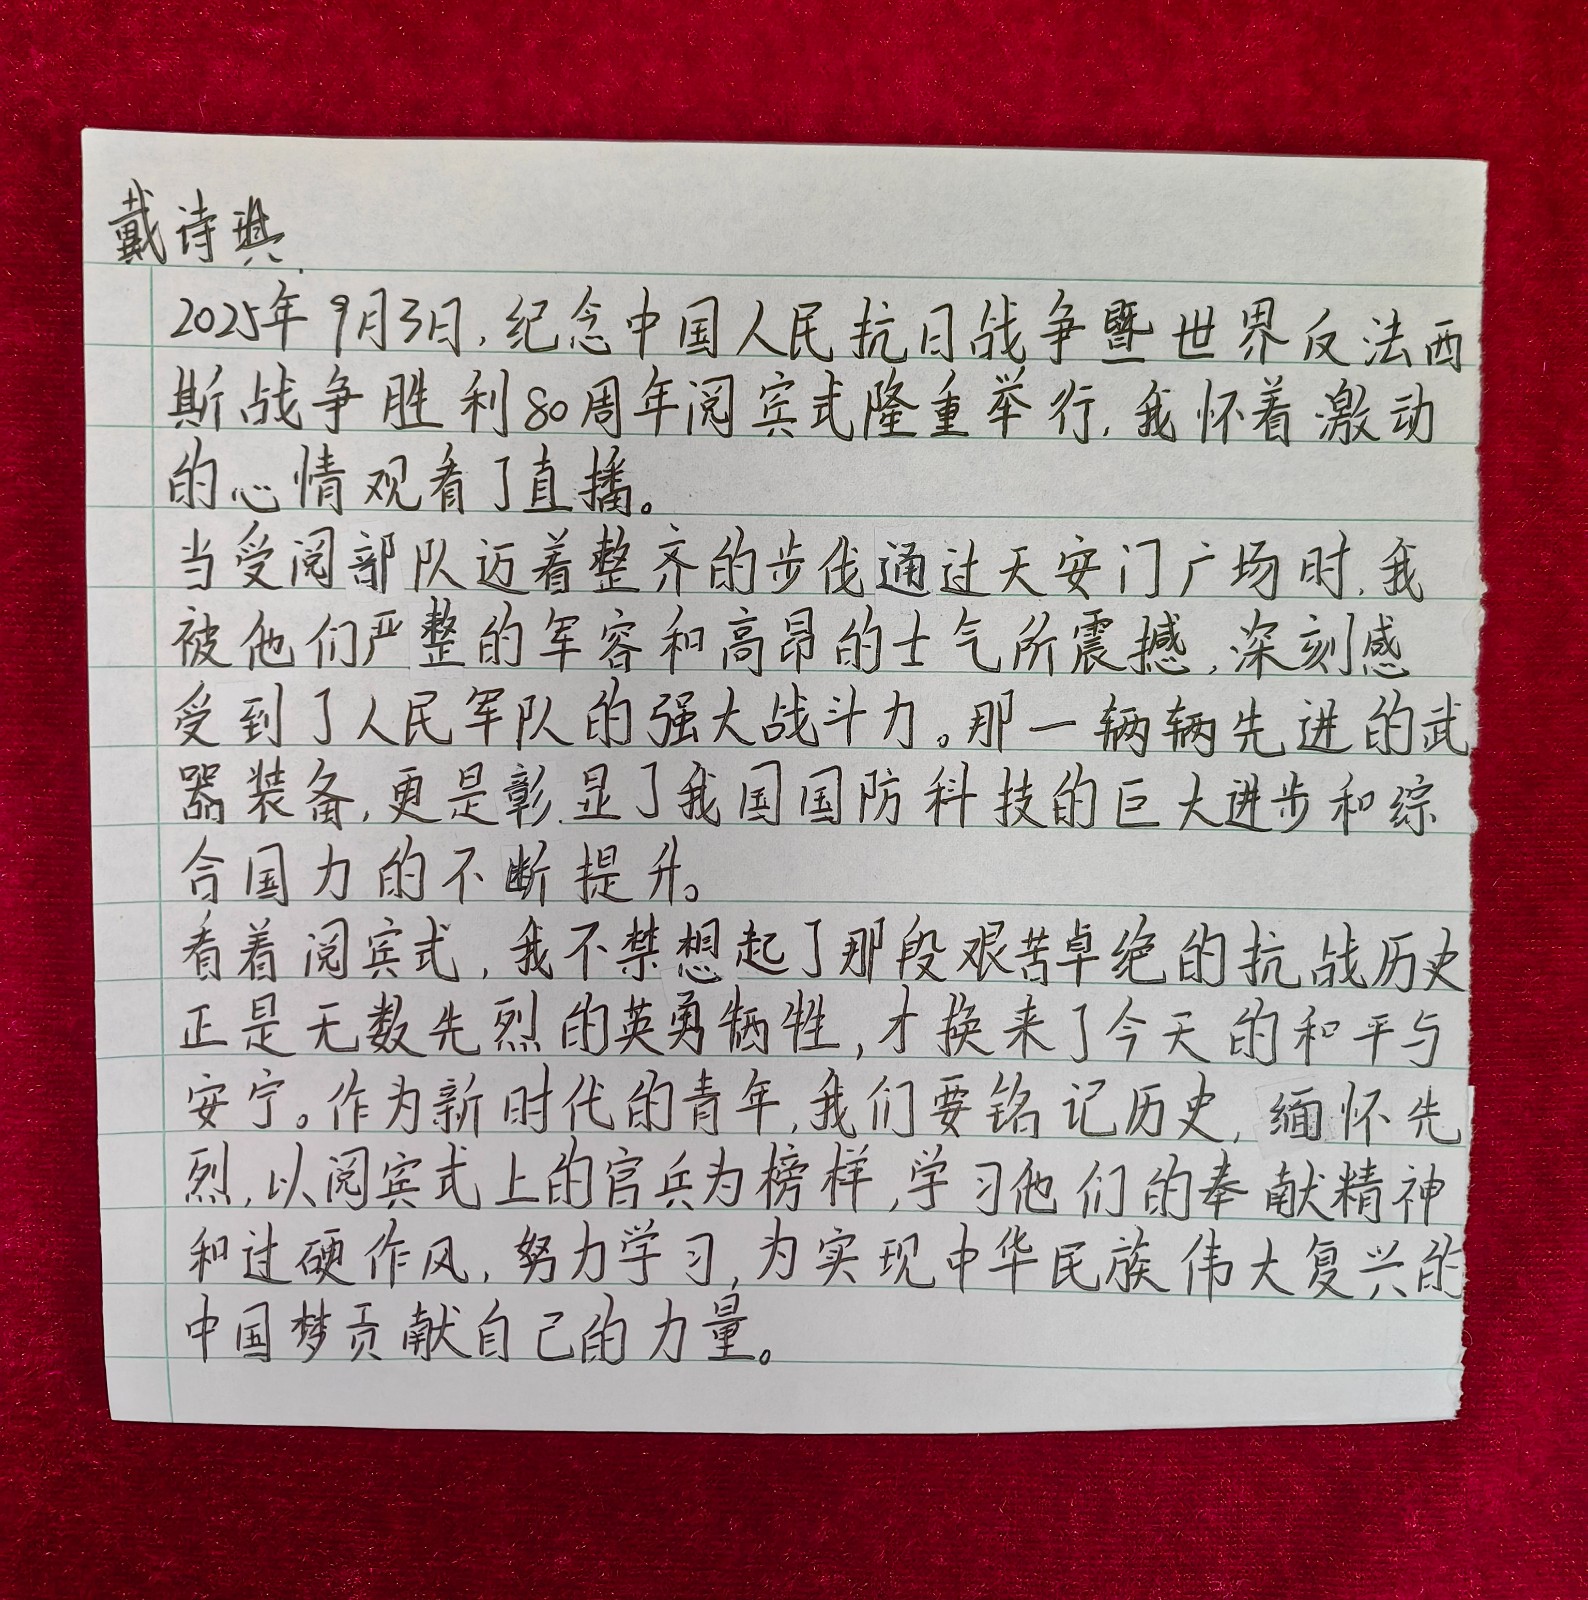 戴诗琪
2025年9月3日,纪念中国人民抗日战争暨世界反法西
斯战争胜利80周年阅宾式隆重举行,我怀着激动
的心情观看了直播。
当受阅部队迈着整齐的步伐通过天安门广场时,我
被他们严整的军容和高昂的士气所震撼,深刻感
受到了人民军队的强大战斗力。那一辆辆先进的武
器装备,更是彰显了我国国防科技的巨大进步和综
合国力的不断提升。
看着阅宾式,我不禁想起了那段艰苦卓绝的抗战历史
正是无数先烈的英勇牺牲,才换来了今天的和平与
安宁。作为新时代的青年,我们要铭记历史,缅怀先
烈,以阅宾式上的官兵为榜样,学习他们的奉献精神
和过硬作风,努力学习,为实现中华民族伟大复兴的
中国梦贡献自己的力量。